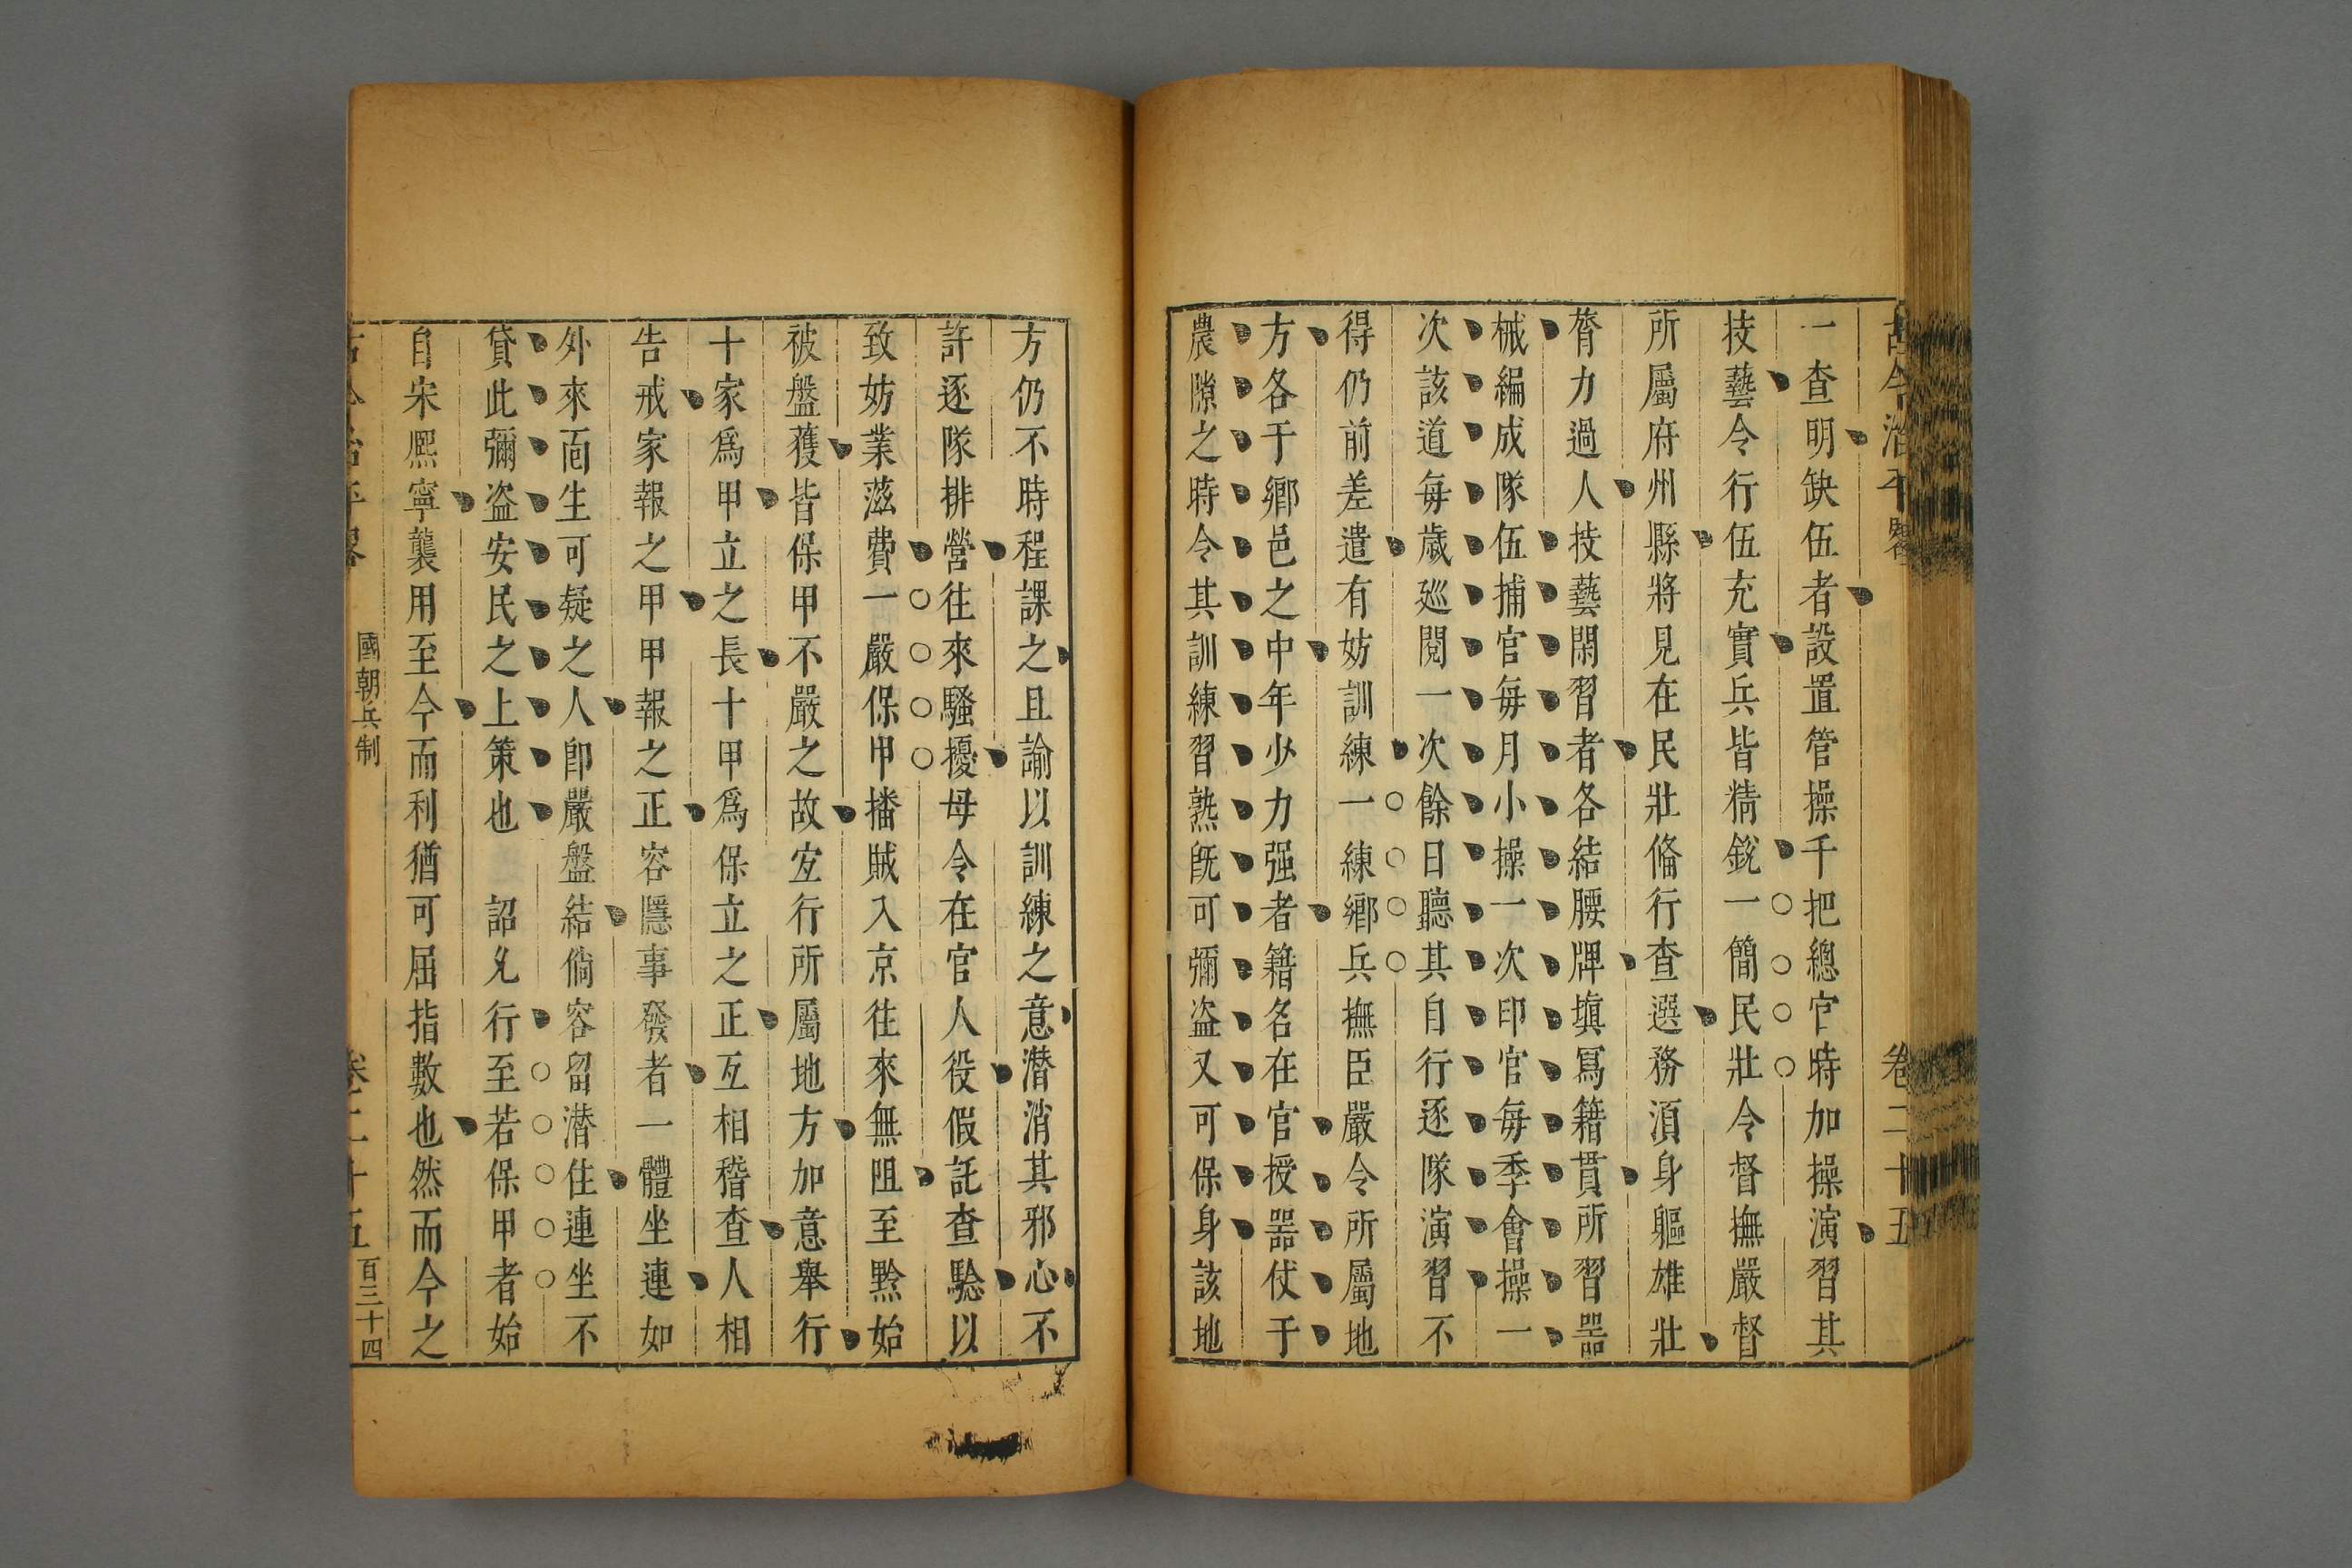 古今治平畧 卷二十五
一查明缺伍者設置管操千把總官時加操演習其
技藝令行伍充實兵皆精銳一簡民壯令督撫嚴督
所屬府州縣將見在民壯偹行查選務湏身軀雄壯
膂力過人技藝閑習者各結腰牌塡寫籍貫所習器
械編成隊伍捕官每月小操一次印官每季會操一
次該道每歲廵閱一次餘日聽其自行逐隊演習不
得仍前差遣有妨訓練一練鄉兵撫臣嚴令所屬地
方各于鄉邑之中年少力强者籍名在官授器仗于
農隙之時令其訓練習熟旣可彌盗又可保身該地
方仍不時程課之且諭以訓練之意潜消其邪心不
許逐隊排營往來騷擾母令在官人役假託查騐以
致妨業滋費一嚴保甲播賊入京往來無阻至黔始
被盤獲皆保甲不嚴之故宐行所屬地方加意舉行
十家爲甲立之長十甲爲保立之正互相稽查人相
告戒家報之甲甲報之正容隱事發者一體坐連如
外來面生可疑之人卽嚴盤結倘容留潜住連坐不
貸此彌盗安民之上策也 詔允行至若保甲者始
自宋熈寧襲用至今而利猶可屈指數也然而今之
古今治平畧 國朝兵制 卷二十五 百三十四